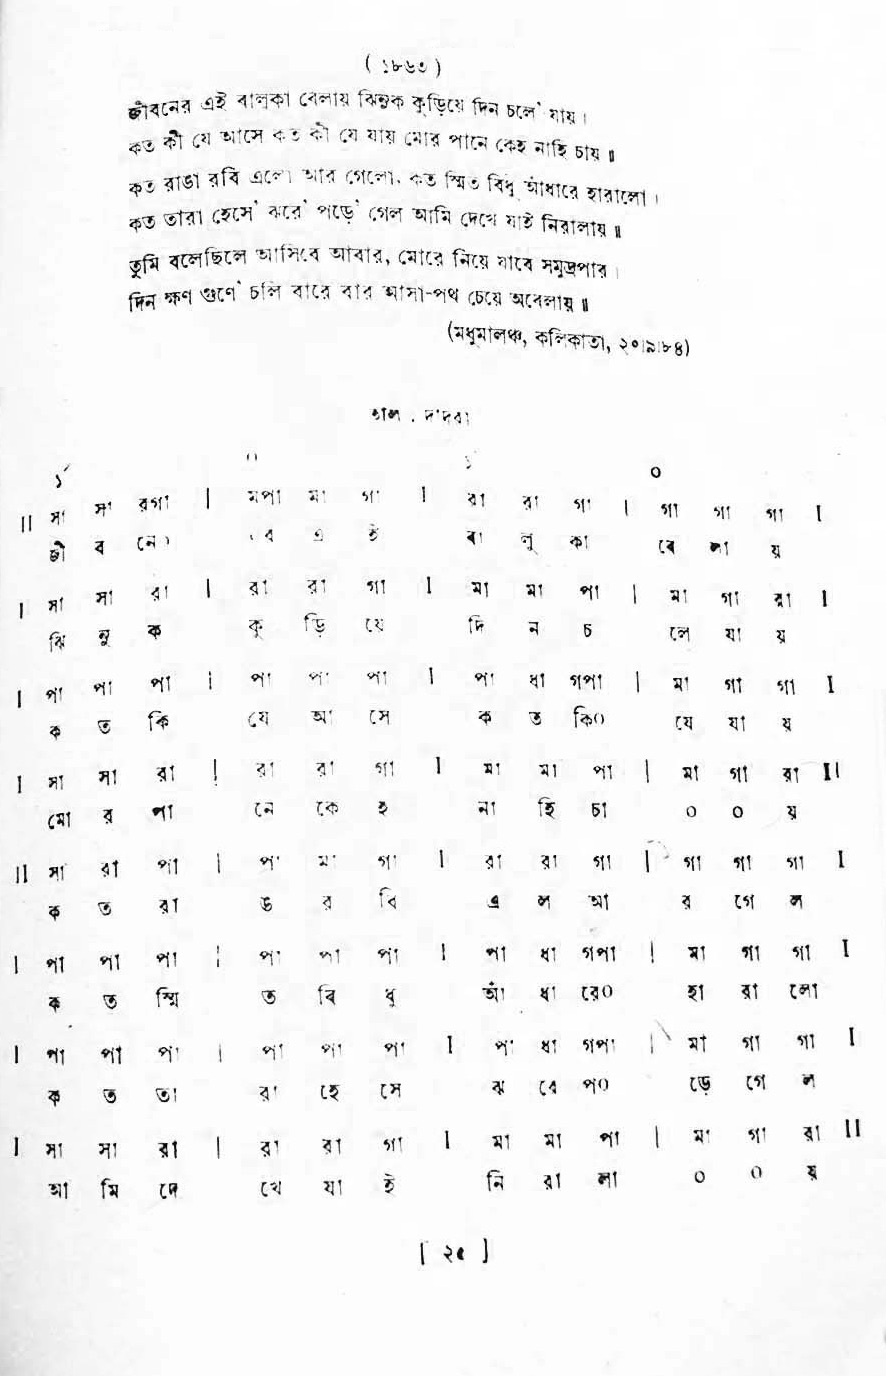 ( ১৮৬৩ )
জীবনের এই বালুকা বেলায় ঝিনুক কুড়িয়ে দিন চলে' যায়।
কত কী যে আসে কত কী যে যায় মোর পানে কেহ নাহি চায়॥
কত রাঙা রবি এলো আর গেলো, কত স্মিত বিধু আঁধারে হারালো।
কত তারা হেসে' ঝরে' পড়ে' গেল আমি দেখে যাই নিরালায়॥
তুমি বলেছিলে আসিবে আবার, মোরে নিয়ে যাবে সমুদ্রপার।
দিন ক্ষণ গুণে' চলি বারে বার আসা-পথ চেয়ে অবেলায়॥
(মধুমালঞ্চ, কলিকাতা, ২০।৯।৮৪)
তাল . দাদরা
১´ ০ ১´ ০
II সা সা রগা | মপা মা গা I রা রা গা | গা গা গা I
জী ব নে০ ০র এ ই বা লু কা বে লা য়
I সা সা রা | রা রা গা I মা মা পা | মা গা রা I
ঝি নু ক কু ড়ি য়ে দি ন চ লে যা য়
I পা পা পা | পা পা পা I পা ধা গপা | মা গা গা I
ক ত কি যে আ সে ক ত কি০ যে যা য়
I সা সা রা | রা রা গা I মা মা পা | মা গা রা II
মো র পা নে কে হ না হি চা ০ ০ য়
II সা রা পা | পা মা গা I রা রা গা | গা গা গা I
ক ত রা ঙ র বি এ ল আ র গে ল
I পা পা পা | পা পা পা I পা ধা গপা | মা গা গা I
ক ত স্মি ত বি ধু আঁ ধা রে০ হা রা লো
I পা পা পা | পা পা পা I পা ধা গপা | মা গা গা I
ক ত তা রা হে সে ঝ রে প০ ড়ে গে ল
I সা সা রা | রা রা গা I মা মা পা | মা গা রা II
আ মি দে খে যা ই নি রা লা ০ ০ য়
[ ২৫ ]